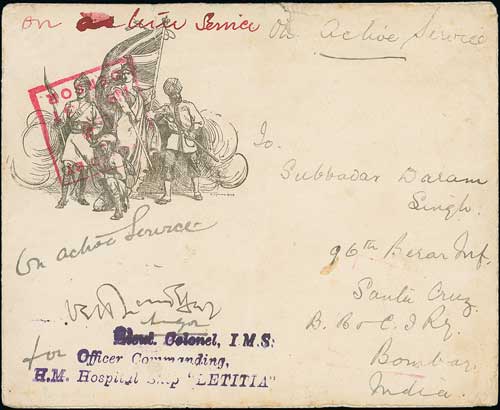 on active Service
on active Service
To.
Subbadar Daram
Singh.
96th Berar Inf.
Santa Cruz.
B. B & C. I Ry.
Bombay.
India.
On active Service
Major
for
Lieut. Colonel, I.M.S:
Officer Commanding,
H.M. Hospital Ship "LETITIA"